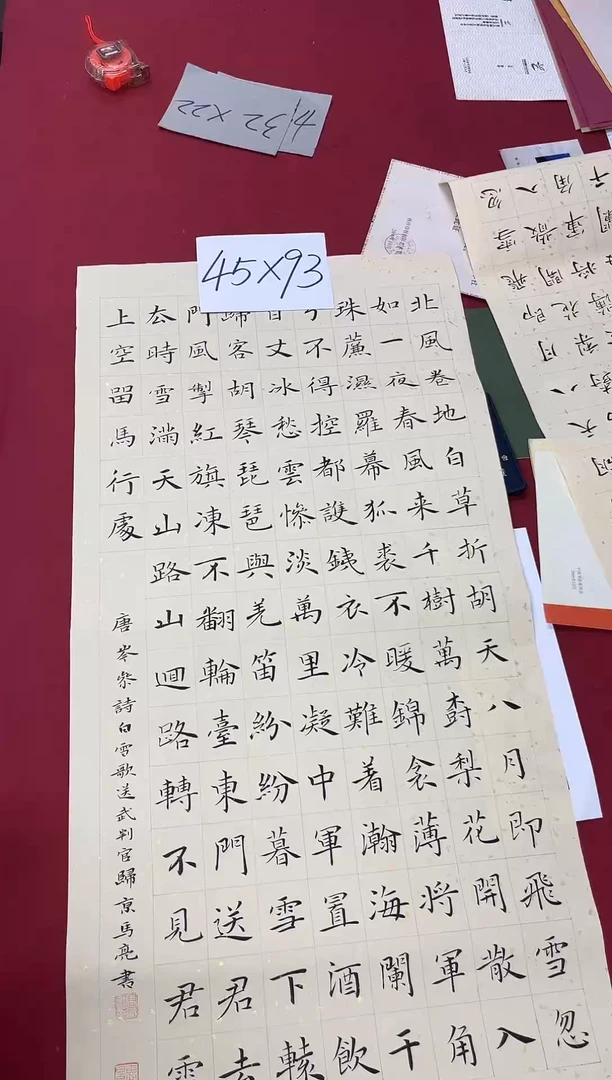 45×93
4, 32×22
北風卷地白草折胡天八月即飛雪忽
如一夜春風来千樹萬樹梨花開散入
珠簾濕羅幕狐裘不暖錦衾薄將軍角
不得控都護銕衣冷難着瀚海闌干
百丈冰愁雲慘淡萬里凝中軍置酒飲
歸客胡琴琵琶與羌笛紛紛暮雪下轅
門風掣紅旗凍不翻輪臺東門送君去
厺時雪滿天山路山迴路轉不見君雪
上空留馬行處
唐岑參詩白雪歌送武判官歸京馬亮書